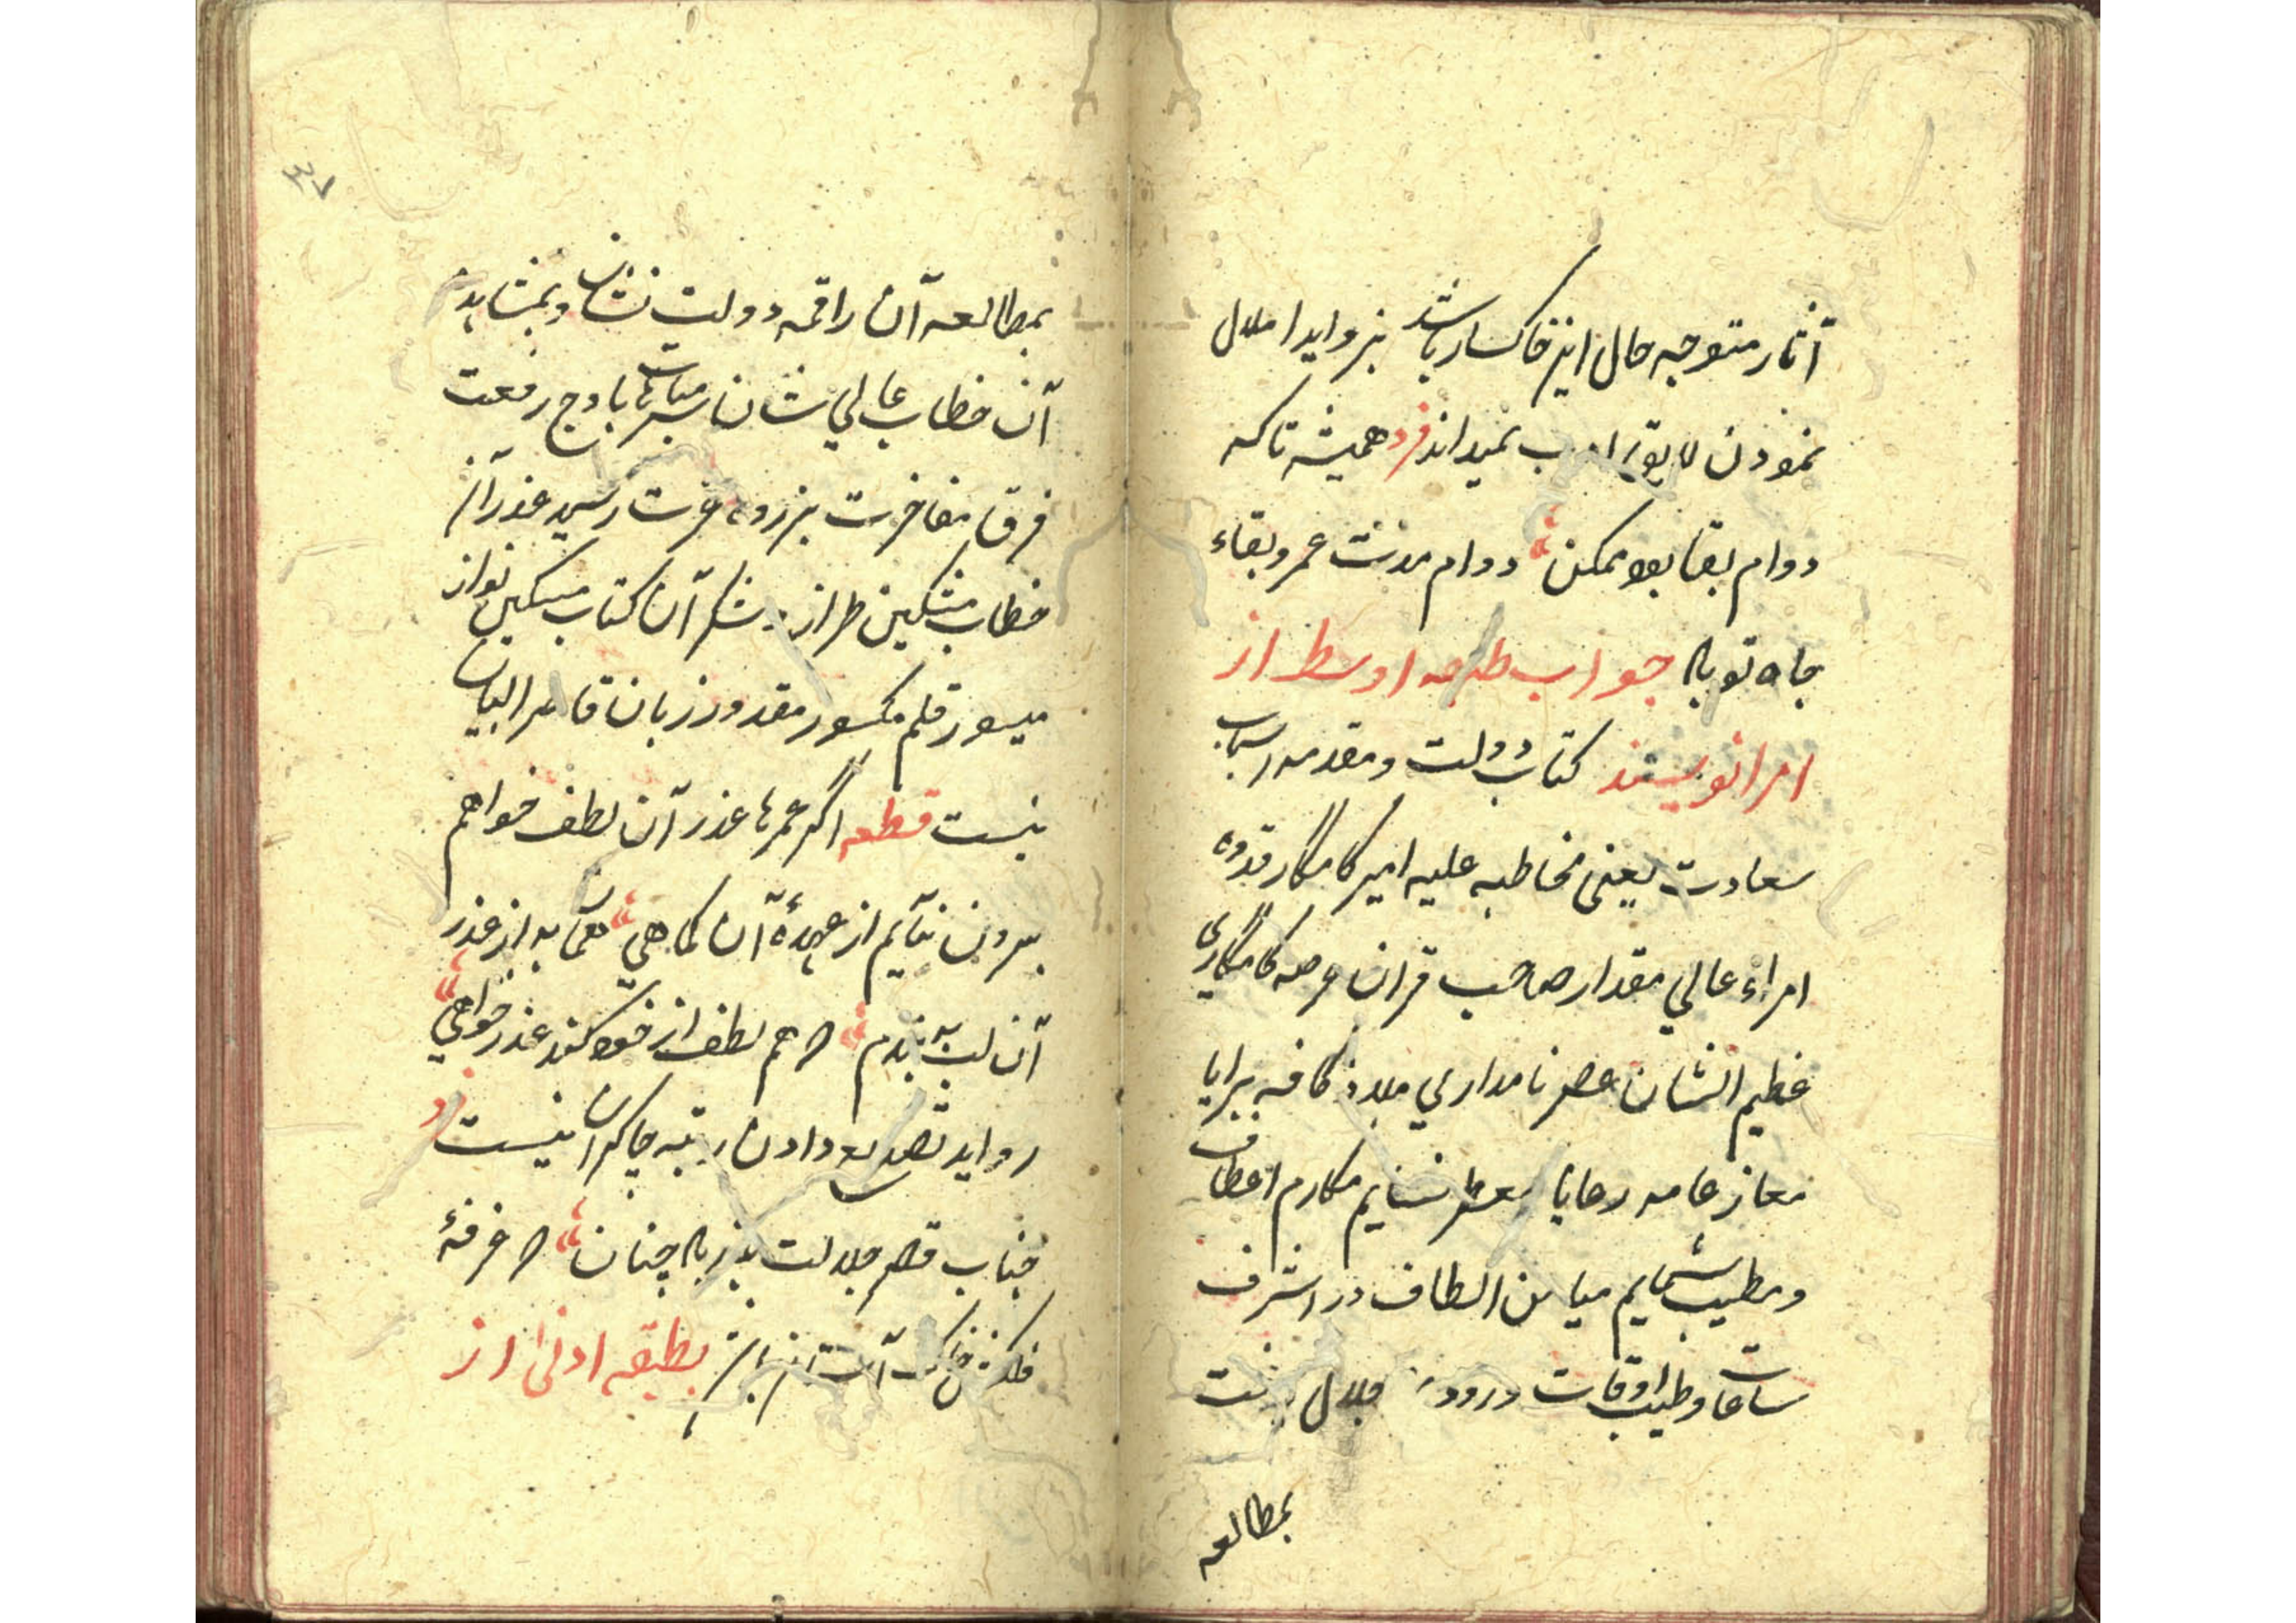 آثار متوجه حال این خاکسار باشد بزواید املال
نمودن لایق ادب نمیداند فرد همیشه تا که
دوام بقا بود ممکن دوام مدت عمر و بقاء
جاه تو باد جواب طبقه اوسط از
امرا نویسند کتاب دولت و مقدمه اسباب
سعادت یعنی مخاطبه علیه امیر کامکار قدوه
امراء عالی مقدار صاحب قران عرصه کامکاری
عظیم الشان عصر نامداری ملاذ کافه برایا
معاذ عامه رعایا معطر نسایم مکارم اعطاف
و مطیب شمایم میامن الطاف در اشرف
ساعات و طیب اوقات درود جلال یافت
بمطالعه
۳۷
بمطالعه آن راقمه دولت نشان و بمشاهده
آن خطاب عالی شان سر مباهات باوج رفعت
فرق مفاخرت بذروه عزت رسید عذر آن
خطاب مشکین طراز و شکر آن کتاب مسکین نواز
میسور قلم مکسور مقدور زبان قاصر البیان
نیست قطعه اگر عمرها عذر آن لطف خواهم
برون نیایم از عهدهٔ آن کماهی همان به از عذر
آن لب ببندم که هم لطف از خود کند عذر خواهی
زواید تصدیع دادن رتبه چاکران نیست فرد
جناب قصر جلالت پذیر باد چنان که غرفهٔ
فلکش خاک آستان باشد بطبقه ادنی از